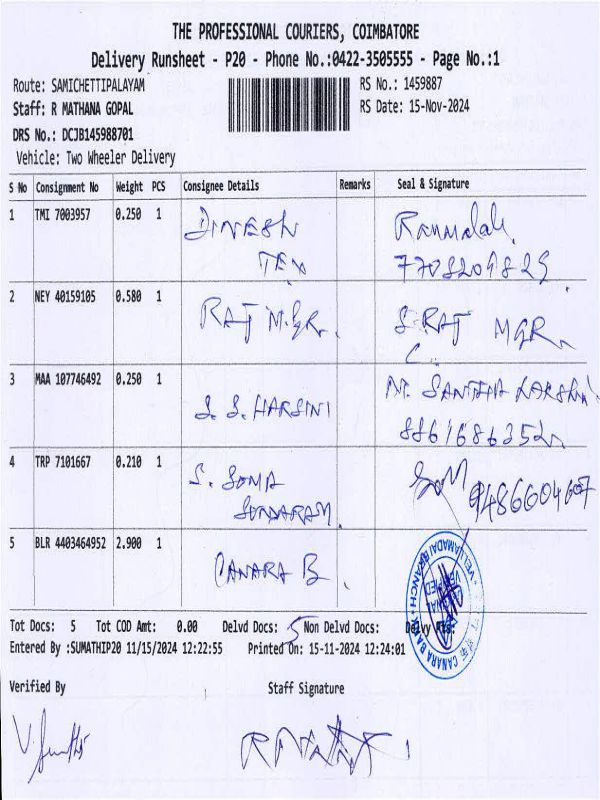 THE PROFESSIONAL COURIERS, COIMBATORE
Delivery Runsheet - P20 - Phone No.:0422-3505555 - Page No.:1
Route: SAMICHETTIPALAYAM RS No.: 1459887
Staff: R MATHANA GOPAL RS Date: 15-Nov-2024
DRS No.: DCJB145988701
Vehicle: Two Wheeler Delivery
S No Consignment No Weight PCS Consignee Details Remarks Seal & Signature
1 TMI 7003957 0.250 1 DINESH
TEX 7708209829
2 NEY 40159105 0.580 1 RAJ MGR. S. RAJ MGR
3 MAA 107746492 0.250 1 S. S. HARSINI M. SANTHA LAKSHMI
8861686352
4 TRP 7101667 0.210 1 S. SOMA SOM 9486604607
SUNDARAM
5 BLR 4403464952 2.900 1 CANARA B.
VELLAMADAI BRANCH CANARA BANK
Tot Docs: 5 Tot COD Amt: 0.00 Delvd Docs: 5 Non Delvd Docs:
Entered By :SUMATHIP20 11/15/2024 12:22:55 Printed On: 15-11-2024 12:24:01
Verified By Staff Signature